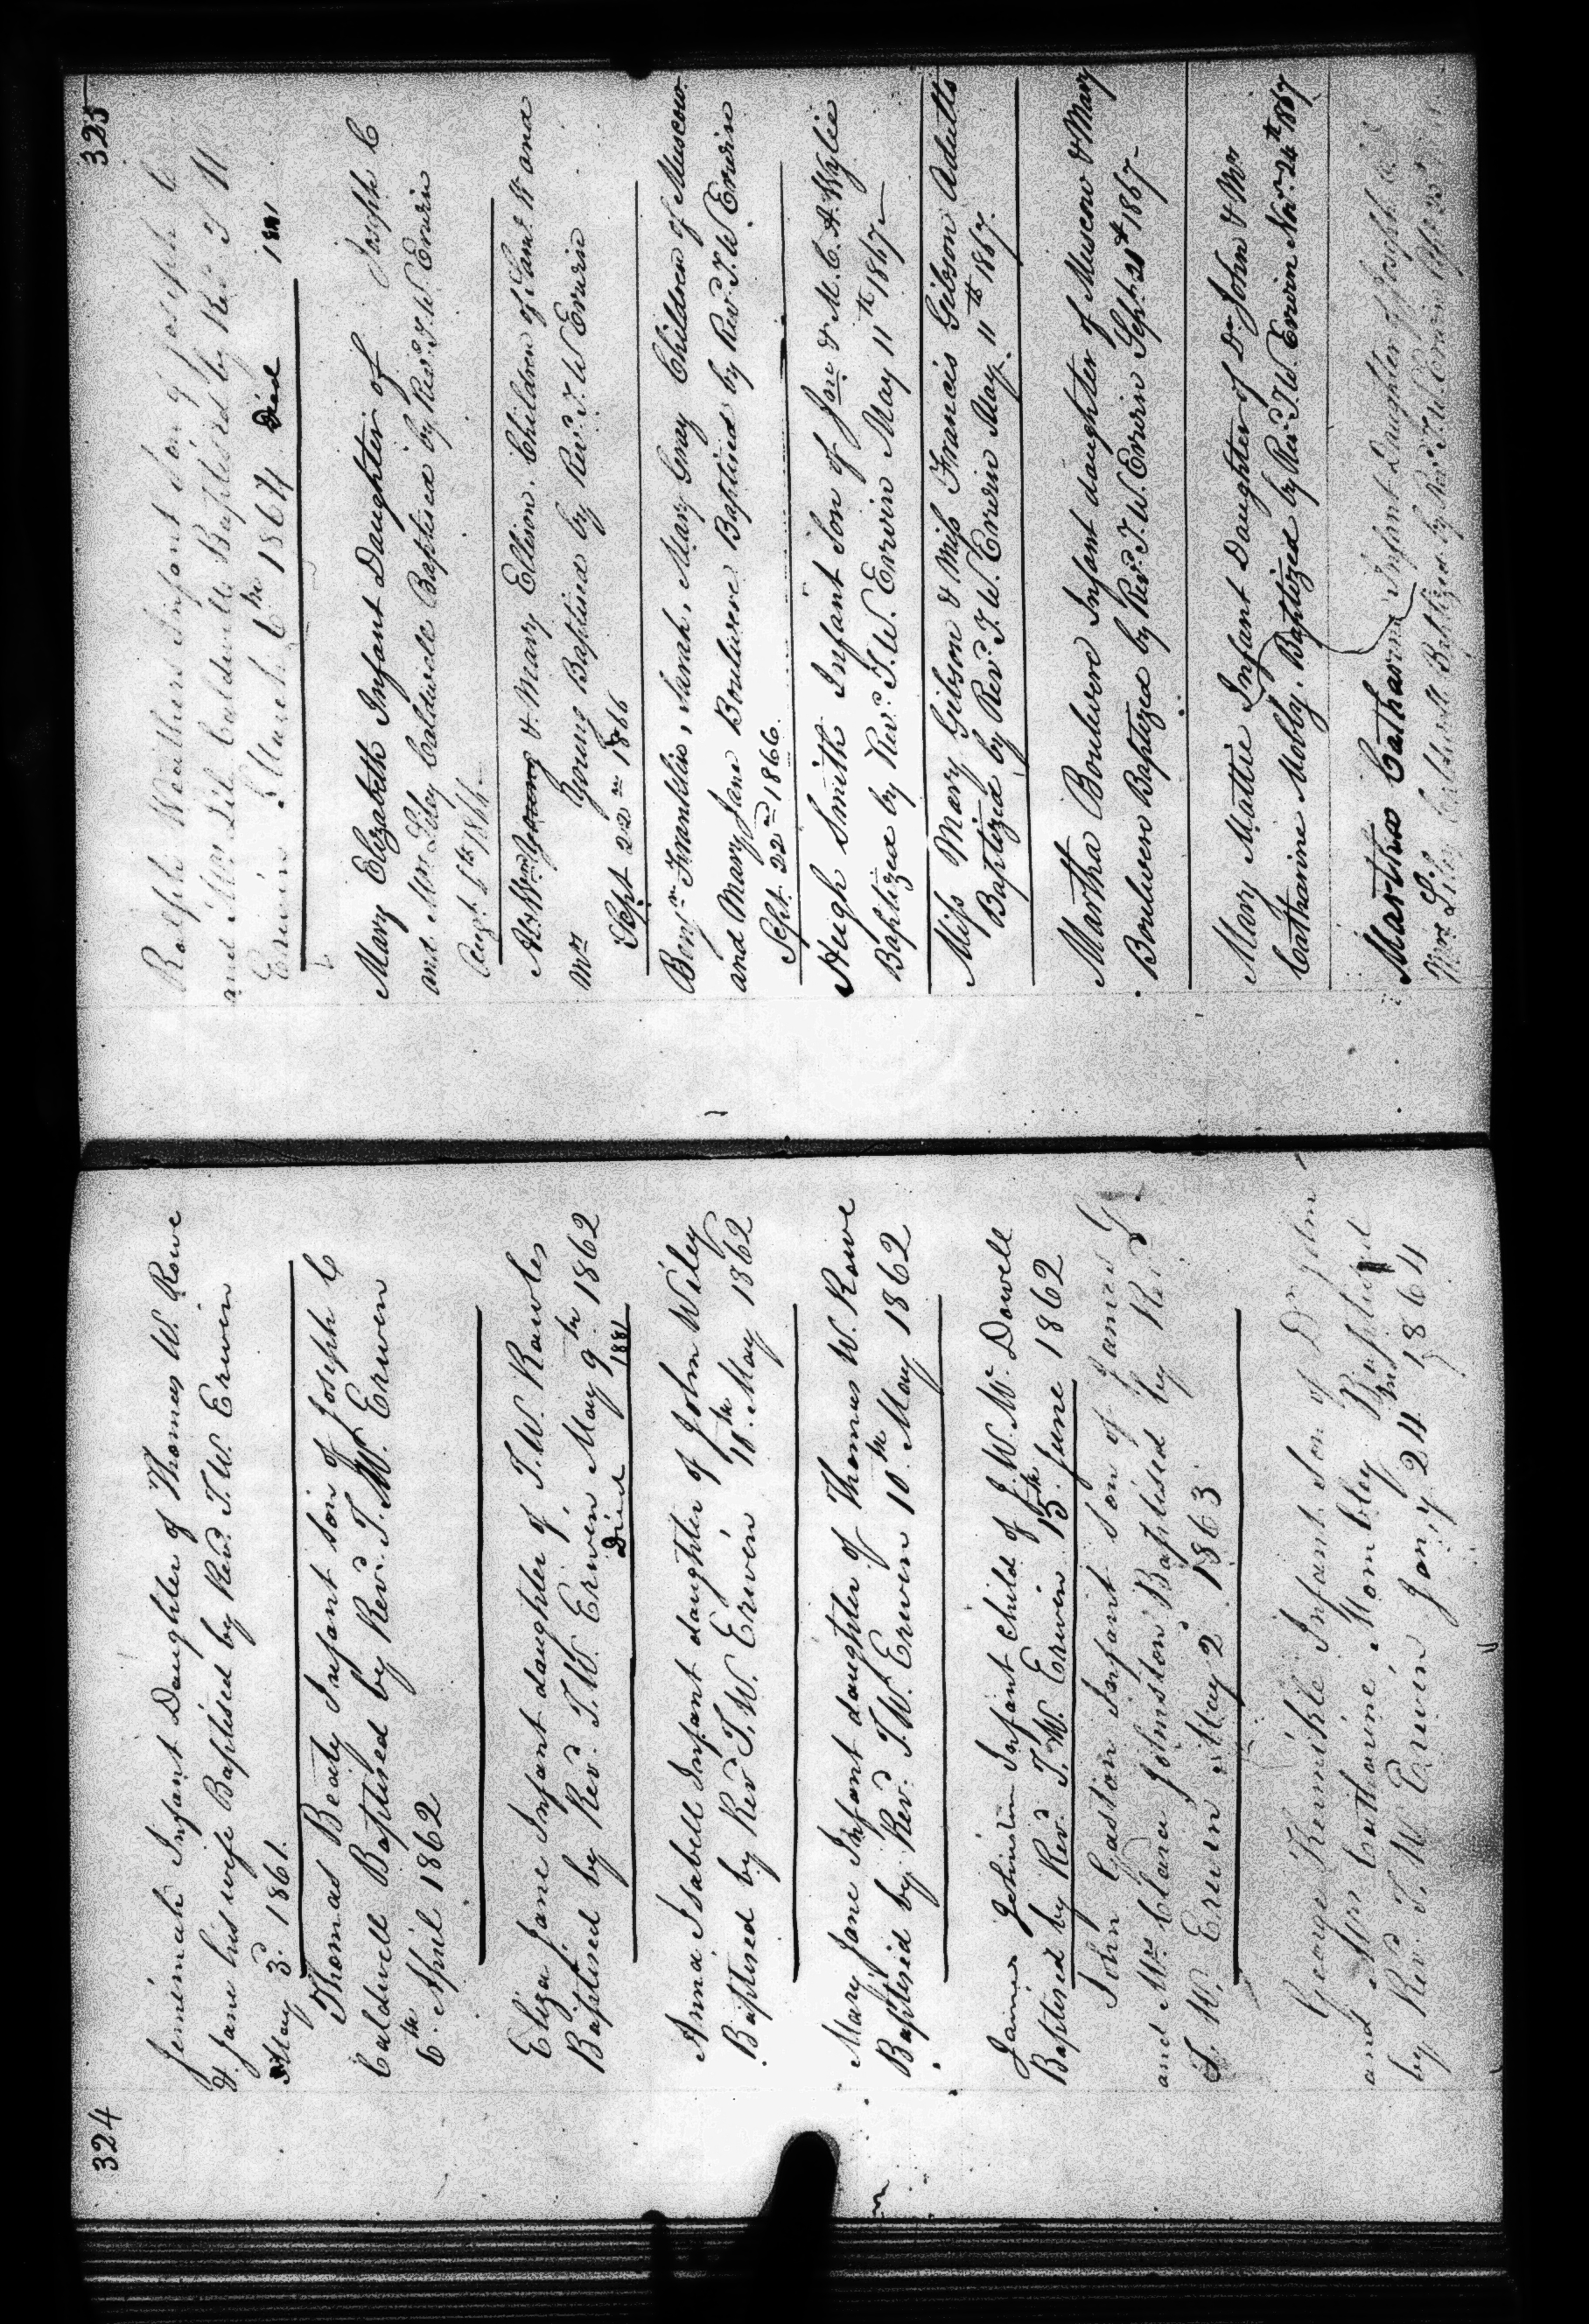 324
Jemimah Infant Daughter of Thomas W. Rowe
& Jane his wife Baptised by Revd. T. W. Erwin
May 3d. 1861.
Thomas Beaty Infant son of Joseph C
Caldwell Baptised by Revd. T. W. Erwin
6th April 1862
Eliza Jane Infant daughter of T. W. Rawles
Baptised by Revd. T. W. Erwin May 9th 1862
Died 1881
Anna Isabell Infant daughter of John Wiley
Baptised by Revd T. W. Erwin 10th May 1862
Mary Jane Infant daughter of Thomas W. Rowe
Baptised by Revd. T. W. Erwin 10th May 1862
James Johnston Infant Child of J. W. Mc. Dowell
Baptised by Revd. T. W. Erwin 15th June 1862
John Gaston Infant son of James G.
and Mrs Clara Johnston Baptised by Revd
T. W. Erwin May 2d 1863
George Infant Son of Dr John
and Mrs Catharine Mombley Baptised
by Revd T. W. Erwin Jany 24 1864
325
Ralph Weathers Infant Son of Joseph C
and Mrs Lile Caldwell Baptised by Rev T W
Erwin March 6th 1864 Died
Mary Elizabeth Infant Daughter of Joseph C
and Mrs Liley Caldwell Baptised by Revd. T. W. Erwin
Augt. 6th 1866
& Mary Ellison. Children of Saml. W and
Mrs Young Baptised by Revd. T. W Erwin
Sept 22nd 1866
Benjn Franklin, Sarah, Mary Grey Children of Muscow
and Mary Jane Boulware Baptised by Revd. T. W. Erwin
Sept. 22nd 1866.
Hugh Smith Infant Son of Jno & M. C. A. Wylie
Baptized by Revd. T. W. Erwin May 11th 1867
Miss Mary Gibson & Miss Francis Gibson Adults
Baptized by Revd. T. W. Erwin May. 11th 1867.
Martha Boulware Infant daughter of Muscow & Mary
Boulware Baptized by Revd. T. W. Erwin Sept. 21st 1867
Mary Mattie Infant Daughter of Dr John & Mrs
Catharine Mobby. Baptized by Revd. T. W. Erwin Novr. 24th 1867
Martha Catharine Infant Daughter of Joseph C.
Mrs Liley Caldwell Baptized by Revd T. W. Erwin